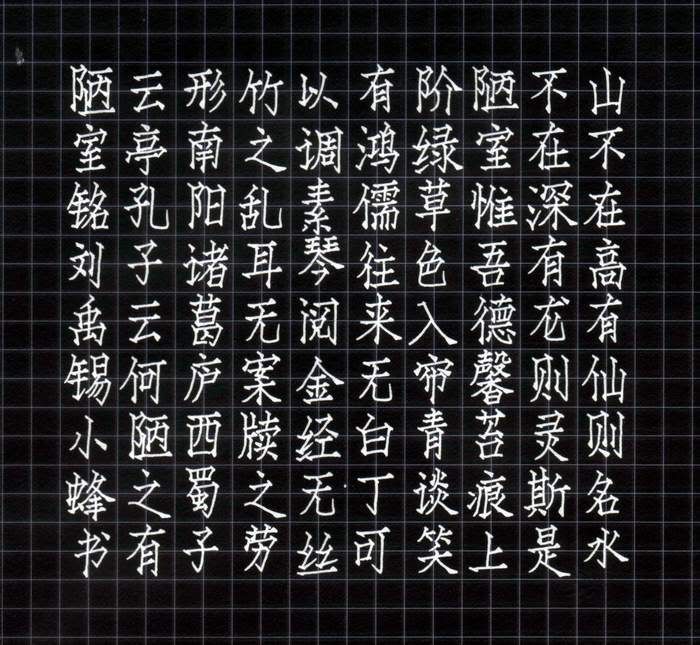 山不在高有仙则名水
不在深有龙则灵斯是
陋室惟吾德馨苔痕上
阶绿草色入帘青谈笑
有鸿儒往来无白丁可
以调素琴阅金经无丝
竹之乱耳无案牍之劳
形南阳诸葛庐西蜀子
云亭孔子云何陋之有
陋室铭刘禹锡小蜂书